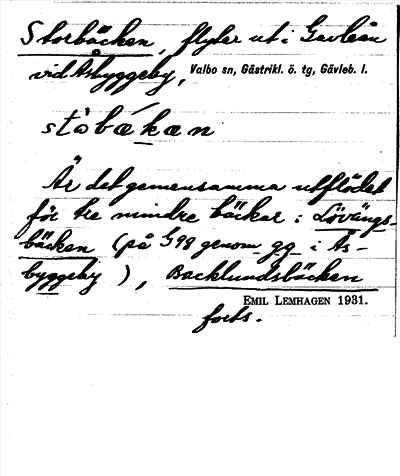 Storbäcken, flyter ut i Gavleån
vid Åsbyggeby, Valbo sn, Gästrikl. ö. tg, Gävleb. l.
stòbákan
Är det gemensamma utflödet
för tre mindre bäckar: Lövängs-
bäcken (på G98 genom gg i Ås-
byggeby), Backlundsbäcken
EMIL LEMHAGEN 1931.
forts.